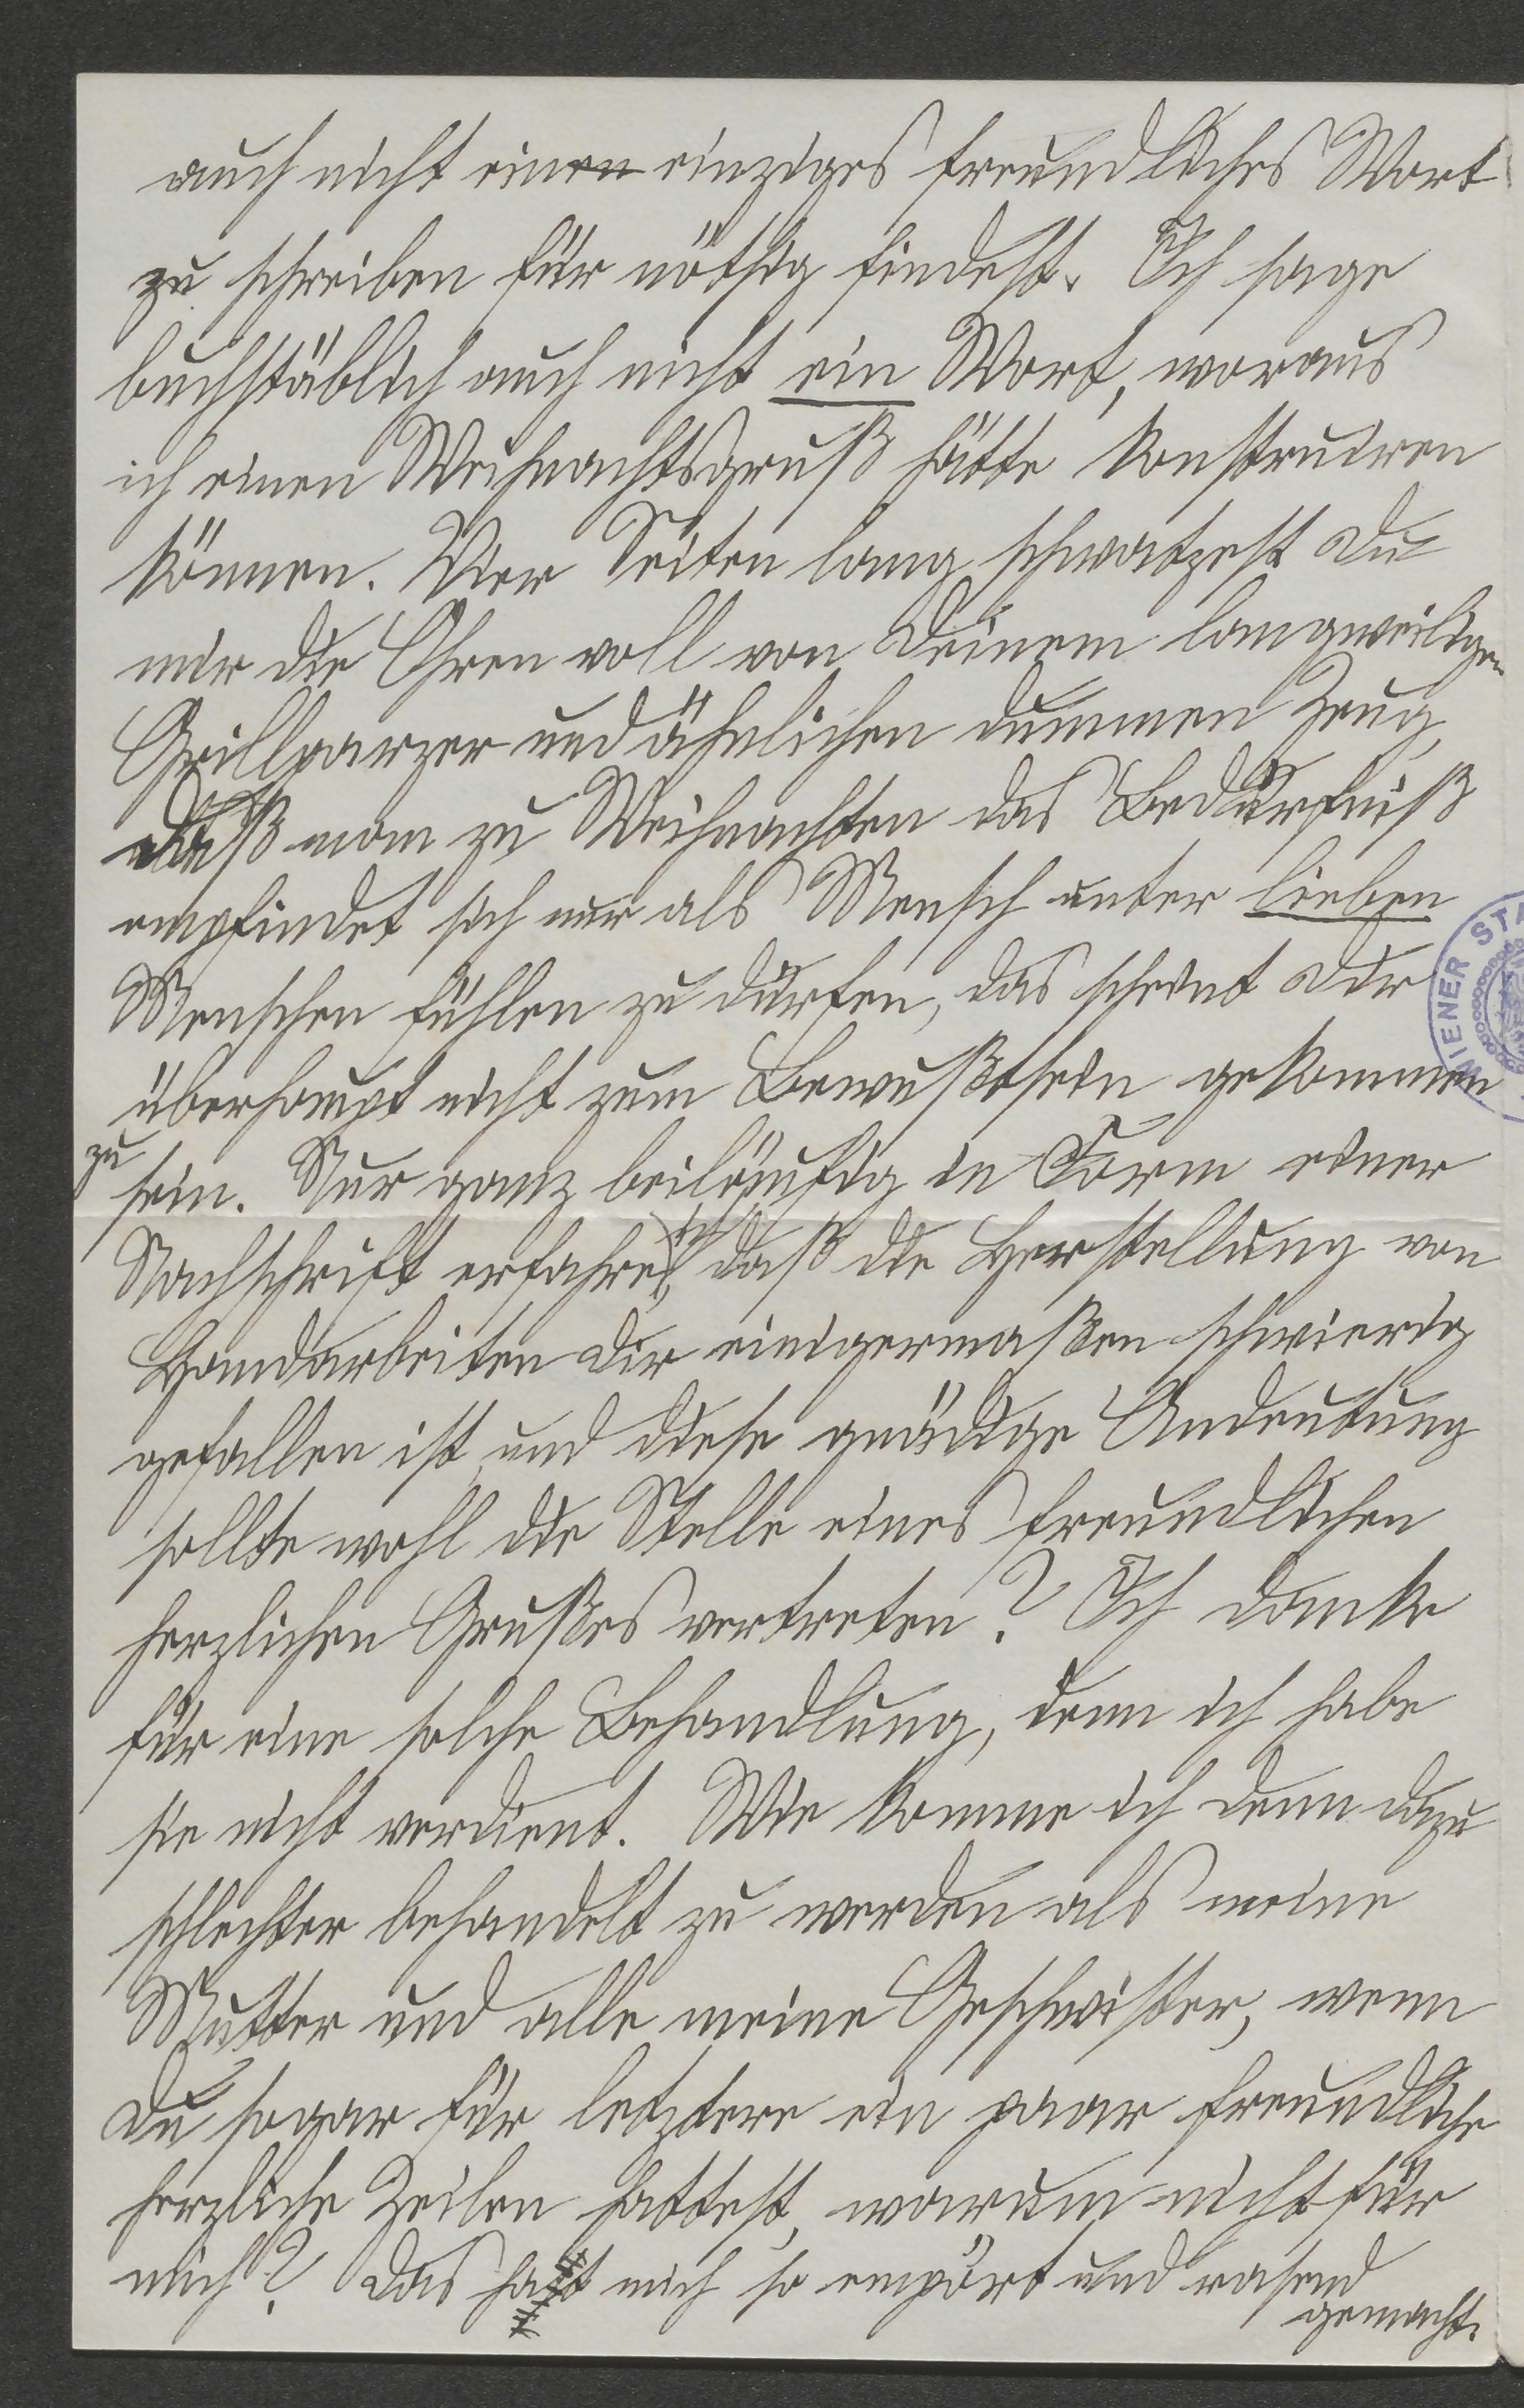 auch nicht einen einziges freundliches Wort
zu schreiben für nöthig findest. Ich sage
buchstäblich auch nicht ein Wort, woraus
ich einen Weihnachtsgruß hätte konstruiren
können. Vier Seiten lang schwatzest Du
mir die Ohren voll von Deinem langweiligen
Grillparzer und ähnlichen dummen Zeug,
Daß man zu Weihnachten das Bedürfniß
empfindet sich nur als Mensch unter lieben
Menschen fühlen zu dürfen, das scheint Dir
überhaupt nicht zum Bewußtsein gekommen
zu sein. Nur ganz beiläufig in Form einer
Nachschrift erfahre ich, daß die Herstellung von
Handarbeiten Dir einigermaßen schwierig
gefallen ist, und diese gnädige Andeutung
sollte wohl die Stelle eines freundlichen
herzlichen Grußes vertreten? Ich danke
für eine solche Behandlung, denn ich habe
sie nicht verdient. Wie komme ich denn dazu
schlechter behandelt zu werden als meine
Mutter und alle meine Geschwister, wenn
Du sogar für letztere ein paar freundliche
herzliche Zeilen hattest, warum nicht für
mich? Das hat mich so empört und rasend
gemacht.
WIENER STA